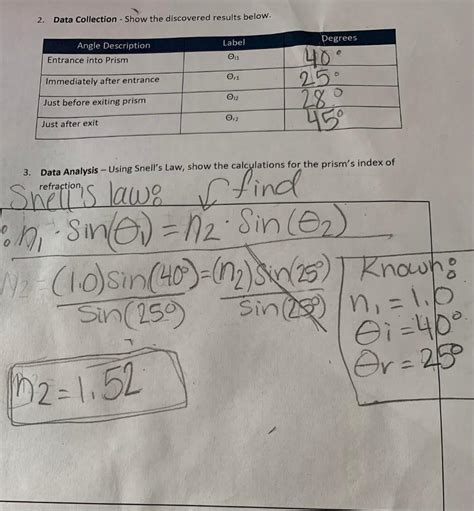 2. Data Collection - Show the discovered results below.
Angle Description Label Degrees
Entrance into Prism Θi1 40°
Immediately after entrance Θr1 25°
Just before exiting prism Θi2 28°
Just after exit Θr2 45°
3. Data Analysis – Using Snell's Law, show the calculations for the prism's index of
refraction
Snell's law: find
n₁ · Sin(θ₁) = n₂ · Sin(θ₂)
n₂ = (1.0)Sin(40°) = (n₂)Sin(25°)
Sin(25°) Sin(25°)
n₂ = 1.52
Known:
n₁ = 1.0
θi = 40°
θr = 25°